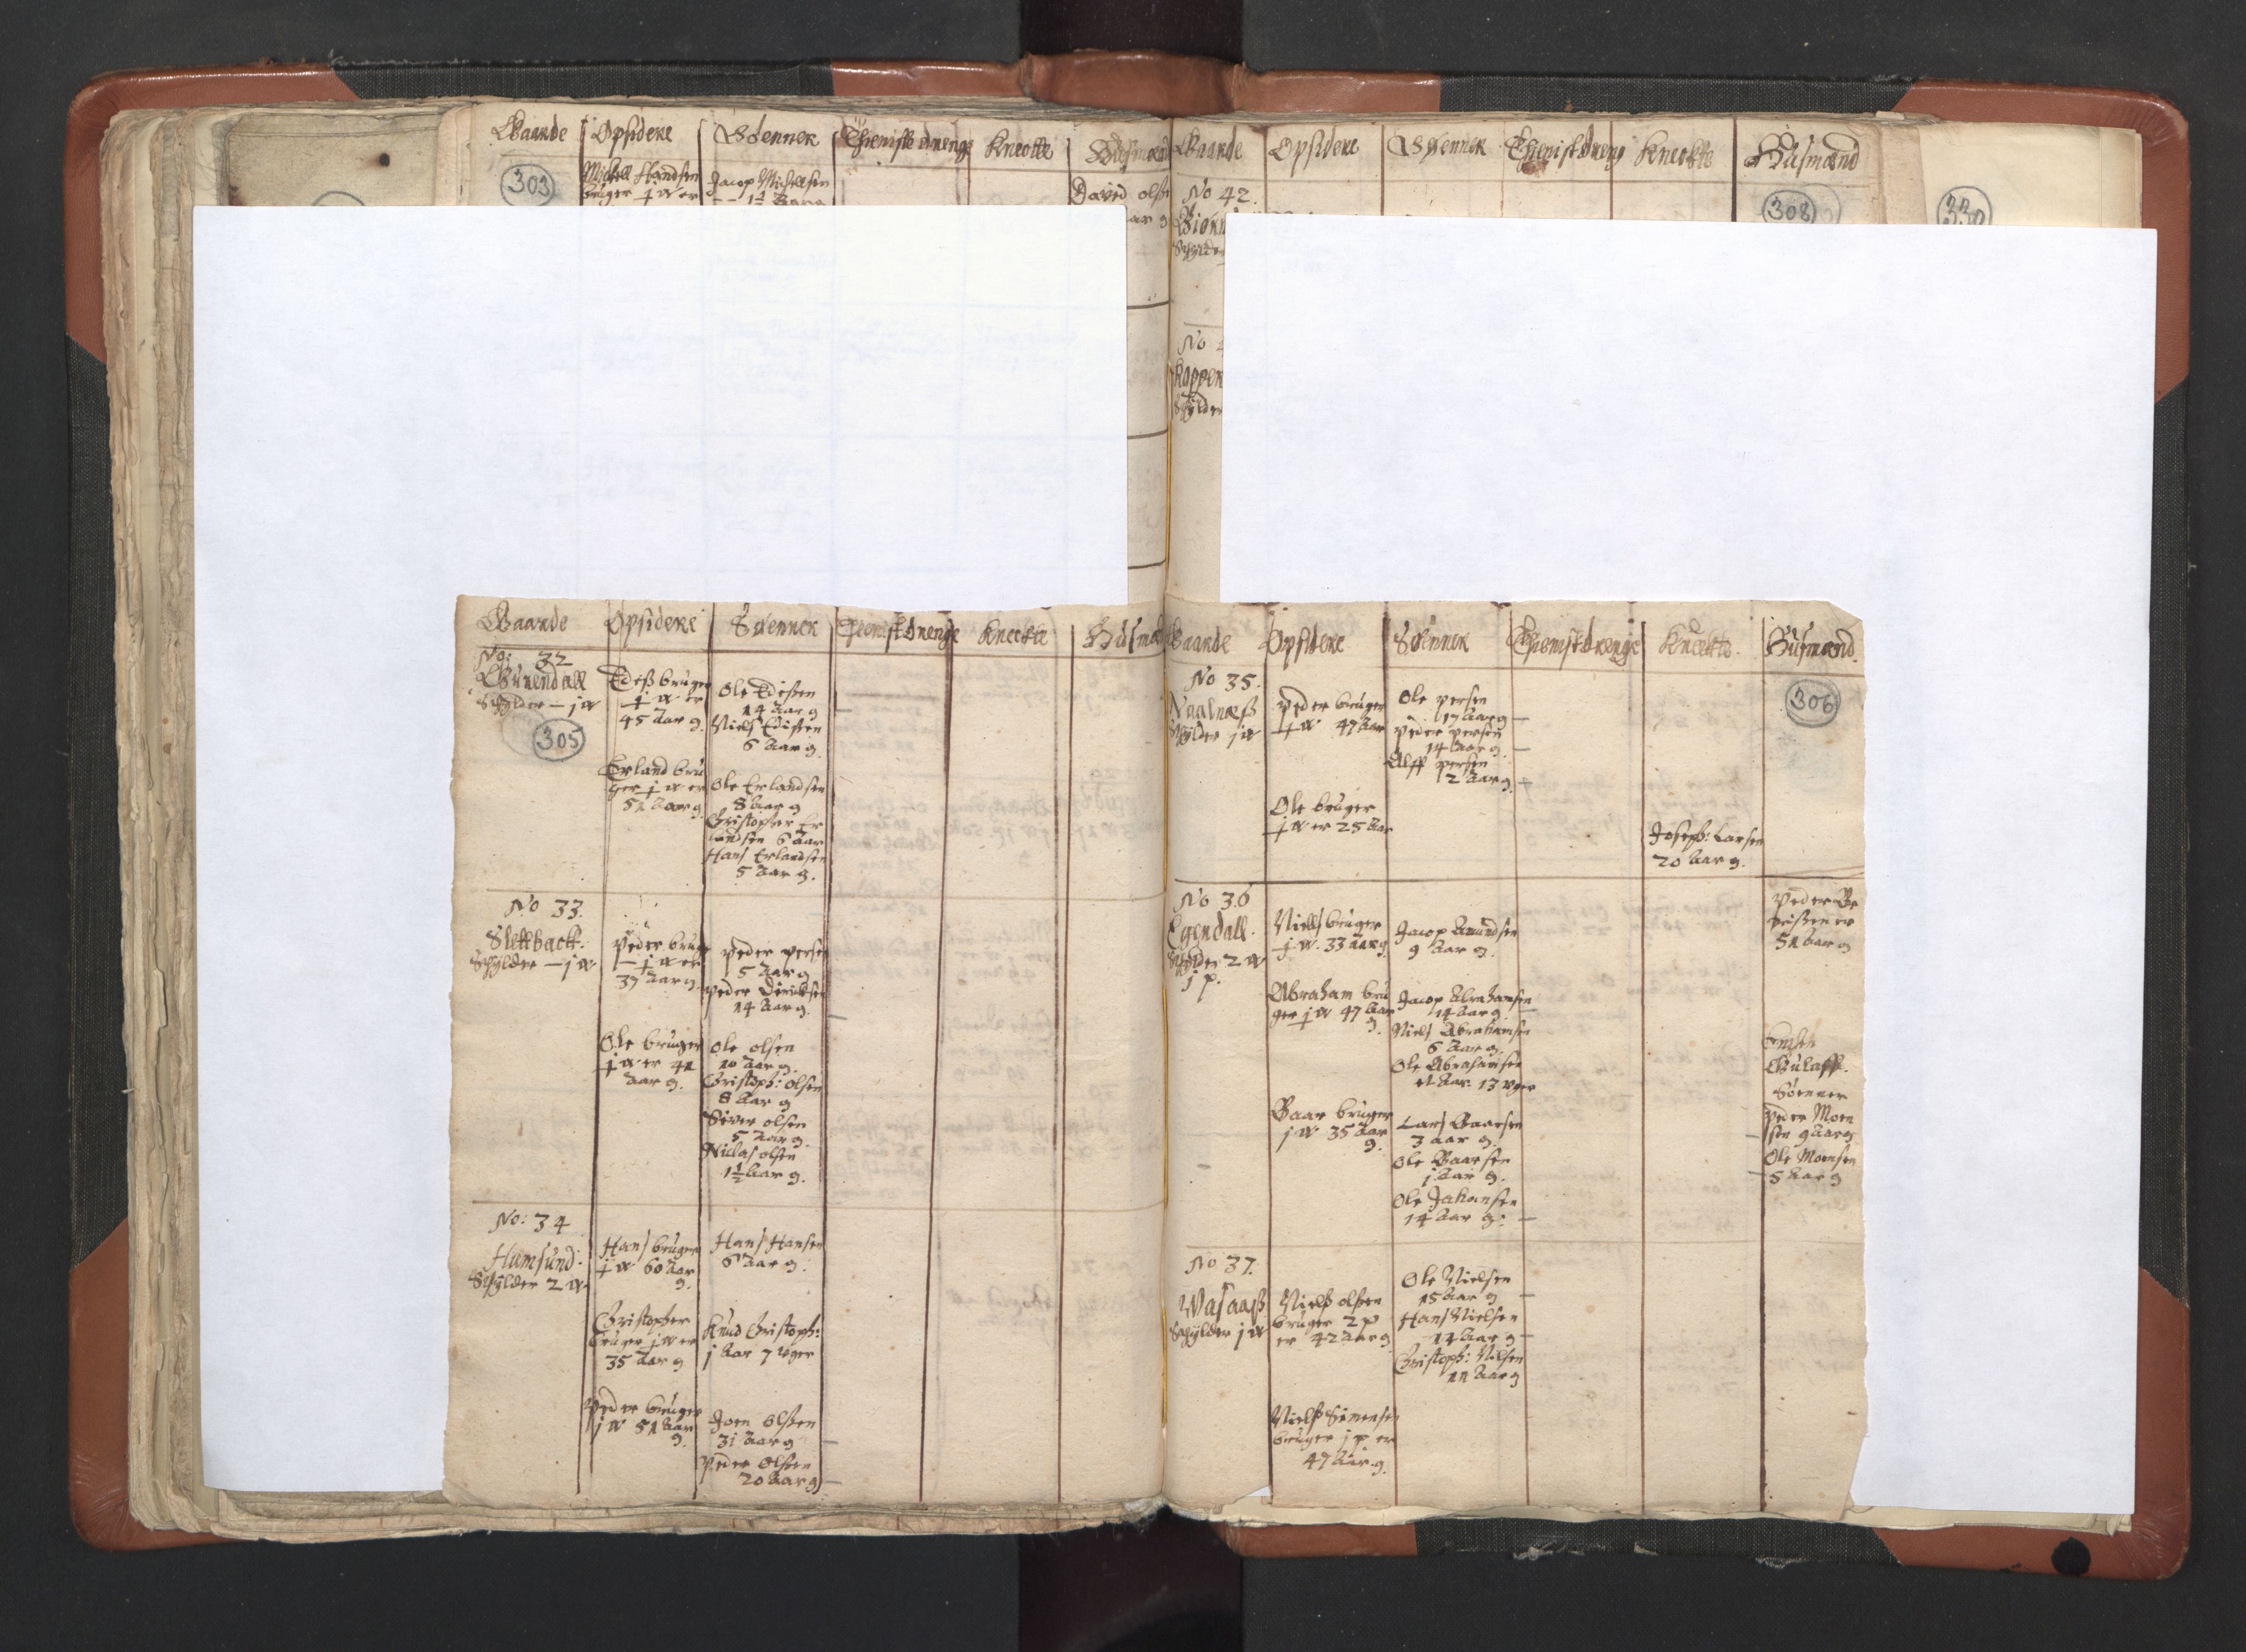 Gaarde Opsidere Sønner Thieniste drenge Knecte Husmænd
303
Michell Handsen
bruger j w er
Jacop Michellsen
1½ Aar g
David olsen
Gaarde Opsidere Sønner Thienistdreng Knecte Husmænd
No 42.
308
330
Schylder
No
Schylder
Gaarde Opsidere Sønner Thenistdrenge Knecte Husmæ
No: 32
Schylder — j w
305
Edeß bruger
j w er
45 Aar g.
Ole Edissen
14 Aar g
Niels Edissen
6 Aar g
Erland bru
ger j w er
51 Aar g
Ole Erlandsen
8 Aar g
Christopher Er
landsen 6 Aar
Hans Erlandsen
5 Aar g.
No 33.
Slettback.
Schylder — j w
Peder bruger
j w er
37 Aar g.
Peder persen
5 Aar g
Peder Diricksen
14 Aar g.
Ole bruger
j w er 41
Aar g.
Ole olsen
10 Aar g.
Christoph: olsen
8 Aar g
Siver olsen
5 Aar g.
Niclas olsen
1½ Aar g.
No: 34
Hamsund.
Schylder 2 w
Hans bruger
j w 60 Aar
g.
Hans Hansen
6 Aar g.
Christopher
bruger j w er
35 Aar g
Knud Christoph:
j Aar 7 uger
Peder bruger
j w 51 Aar
g.
Joen Olssen
31 Aar g
Peder Olssen
20 Aar g
Gaarde Opsidere Sønner Thienistdrenge Knecte. Husmænd.
No 35.
Naalneß
Schylder j w
306
Peder bruger
j w 47 Aar
Ole persen
17 Aar g
Peder persen
14 Aar g.
Alff persen
2 Aar g.
Ole bruger
j w er 25 Aar
Joseph: Larsen
20 Aar g.
No 36
Egendall.
Schylder 2 w
j p.
Niels bruger
j w. 33 Aar g
Jacop Amundsen
9 Aar g.
51 Aar g
Abraham bru
ger j w 47 Aar
g.
Jacop Abrahamsen
14 Aar g.
Niels Abrahamsen
6 Aar g.
Ole Abrahamsen
Aar 13 uger
Sønner
Peder Moen
sen 9 Aar g
Ole Moensen
5 Aar g
Baar bruger
j w 35 Aar
g.
Lars Baarsen
3 aar g.
Ole Baarsen
j Aar g.
Ole Johansen
14 Aar g.
No 37.
Wasaaß
Schylder j w
Nielß olssen
bruger 2 p
er 42 Aar g
Ole Nielsen
15 Aar g
Hans Nielsen
14 Aar g
Christoph: Nilsen
11 Aar g
Nielß Simensen
bruger j p er
47 Aar g.